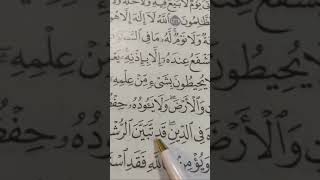 يَوْمٌ لَّا بَيْعٌ فِيهِ وَلَا خُلَّةٌ وَ
ٱللَّهُ لَآ إِلَٰهَ إِلَّا هُ
وَلَا نَوْمٌ لَّهُۥ مَا فِى ٱلسَّ
شْفَعُ عِندَهُۥٓ إِلَّا بِإِذْنِهِۦ يَعْلَ
يُحِيطُونَ بِشَىْءٍ مِّنْ عِلْمِهِۦٓ
وَٱلْأَرْضَ وَلَا يَـُٔودُهُۥ حِفْظُ
فِى ٱلدِّينِ قَد تَّبَيَّنَ ٱلرُّشْ
وَيُؤْمِنۢ بِٱللَّهِ فَقَدِ ٱسْ